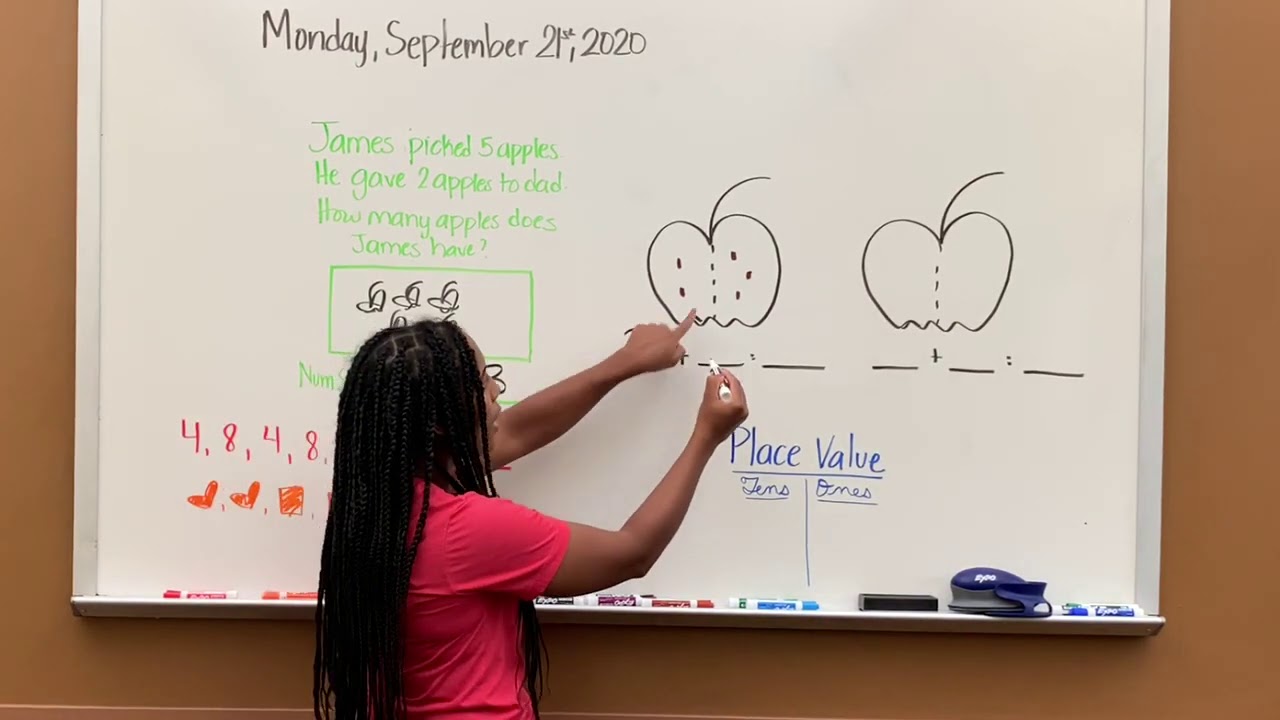 Monday, September 21st, 2020
James picked 5 apples.
He gave 2 apples to dad.
How many apples does
James have?
3
4, 8, 4, 8,
+ __ = __
__ + __ = __
Place Value
Tens Ones
EXPO
EXPO